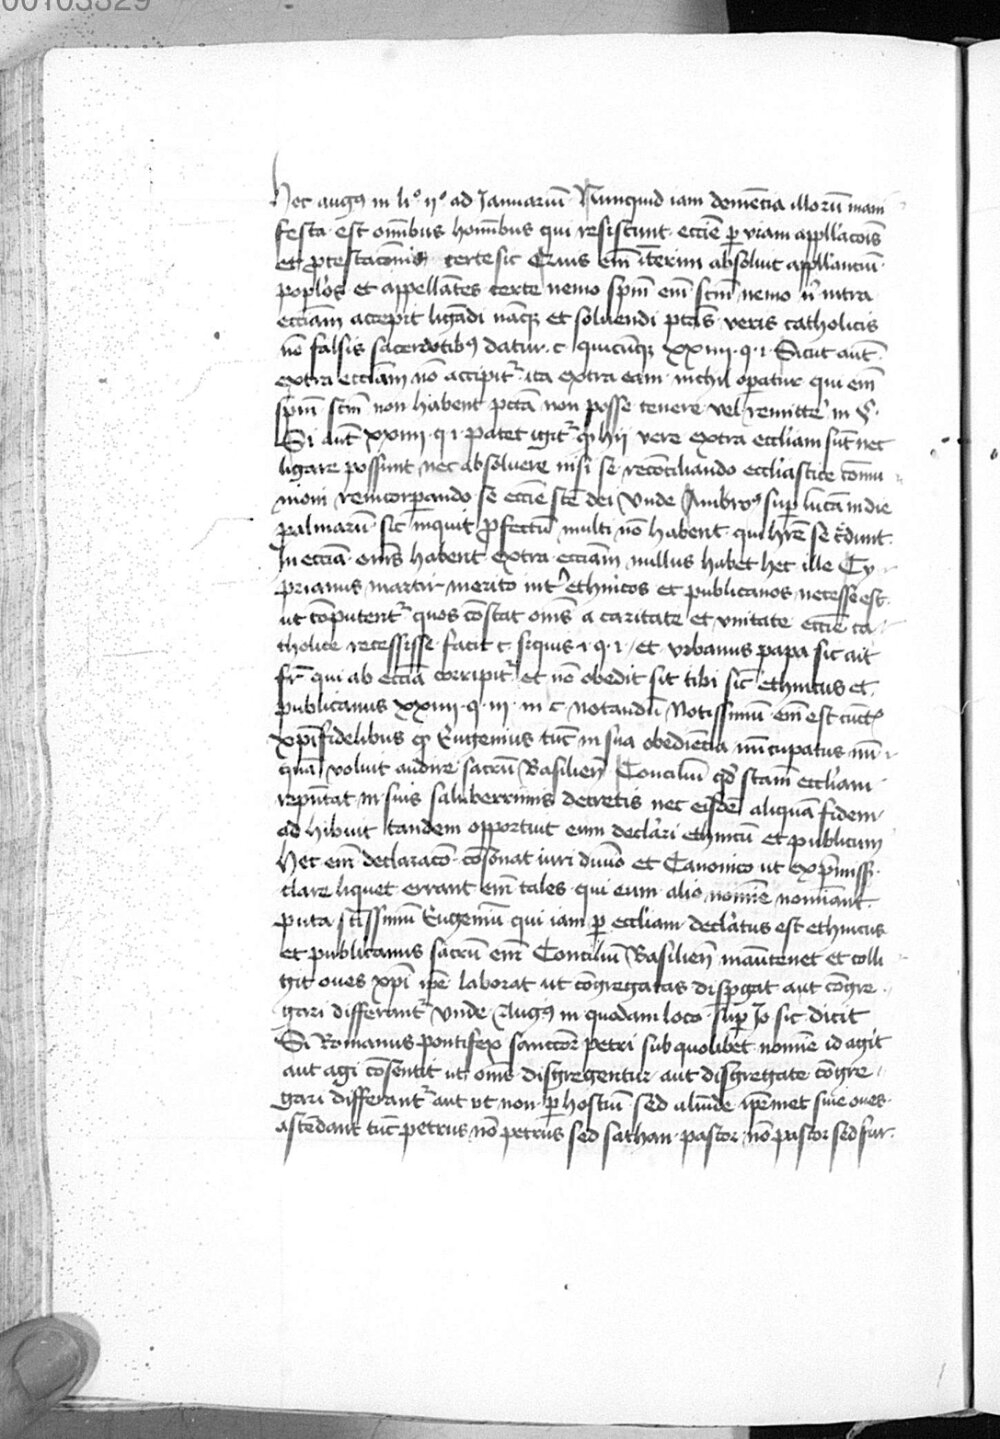 00103329
Hec augꝰ in li° ij° ad Januariū Nunquid iam demēcia illorū mani
festa est omībus homībus qui resistunt eccīe ꝑ viam appllacōis
et ꝓtestacōnis certe sic Quis em̄ īterim absoluit appllantiū
et appellātes certe nemo sp̄m em̄ scm̄ nemo n̄ intra
ecciam accepit ligādi nāqꝫ et soluendi ptās veris catholicis
nō falsis sacerdotibꝰ datur c quicūqꝫ xxiiii q i Sicut aūt
extra eccliam nō accipit᷑ ita extra eam nichil oꝑatur qui em̄
sp̄m scm̄ non habent pctā non posse tenere vel remitte᷑ in §
Si aūt xxiiii q i patet igit᷑ ꝙ hii vere extra eccliam sūt nec
ligare possunt nec absoluere nisi se recōciliando eccliastice cōmu
nioni reincorꝑando se eccīe scē dei Vnde Ambroꝰ suꝑ lucā in die
palmarū sic inquit ꝓfectū multi nō habent qui hr̄e se cr̄dunt
In ecciā om̄s habent extra ecciam nullus habet hec ille Cy
prianus martir merito int᷑ ethnicos et publicanos necesse est
ut cōputent᷑ quos cōstat om̄s a caritate et vnitate eccīe ca
tholice recessisse facit c siquis i q i et vrbanus papa sic ait
fr̄ qui ab ecciā corripit᷑ et nō obedit sit tibi sic̄ ethnicus et
publicanus xxiiii q iii in c notandū Notissimū em̄ est cūct᷑
xp̄ifidelibus ꝙ Eugenius tūc in sua obediēcia nūcupatus nū
quā voluit audire sacrū Basilien̄ Conciliū qd̄ scām eccliam
rep̄ntat in suis saluberrimis decretis nec eisdē aliquā fidem
adhibuit tandem opportuit eum declāri ethnicū et publicum
Hec em̄ declaracō cōsonat iuri diuīo et Canonico ut exp̄miss᷑
clare liquet errant em̄ tales qui eum alio nomīe nomīant
puta scīssimū Eugeniū qui iam ꝑ eccliam declātus est ethnicus
et publicanus sacrū em̄ Conciliū Basilien̄ mānutenet et colli
git oues xp̄i ip̄e laborat ut cōgregatas disꝑgat aut cōgre
gari differant᷑ Vnde Augꝰ in quodam loco suꝑ Jo sic dicit
Si Romanus pontifex sancctoꝝ petri sub quolibet nomīe id agit
aut agi cōsentit ut om̄s disgregentur aut disgregate cōgre
gari differant᷑ aut vt non ꝑ hostiū sed aliūde ip̄emet siue oues
ascēdant tūc petrus nō petrus sed sathan pastor nō pastor sed fur